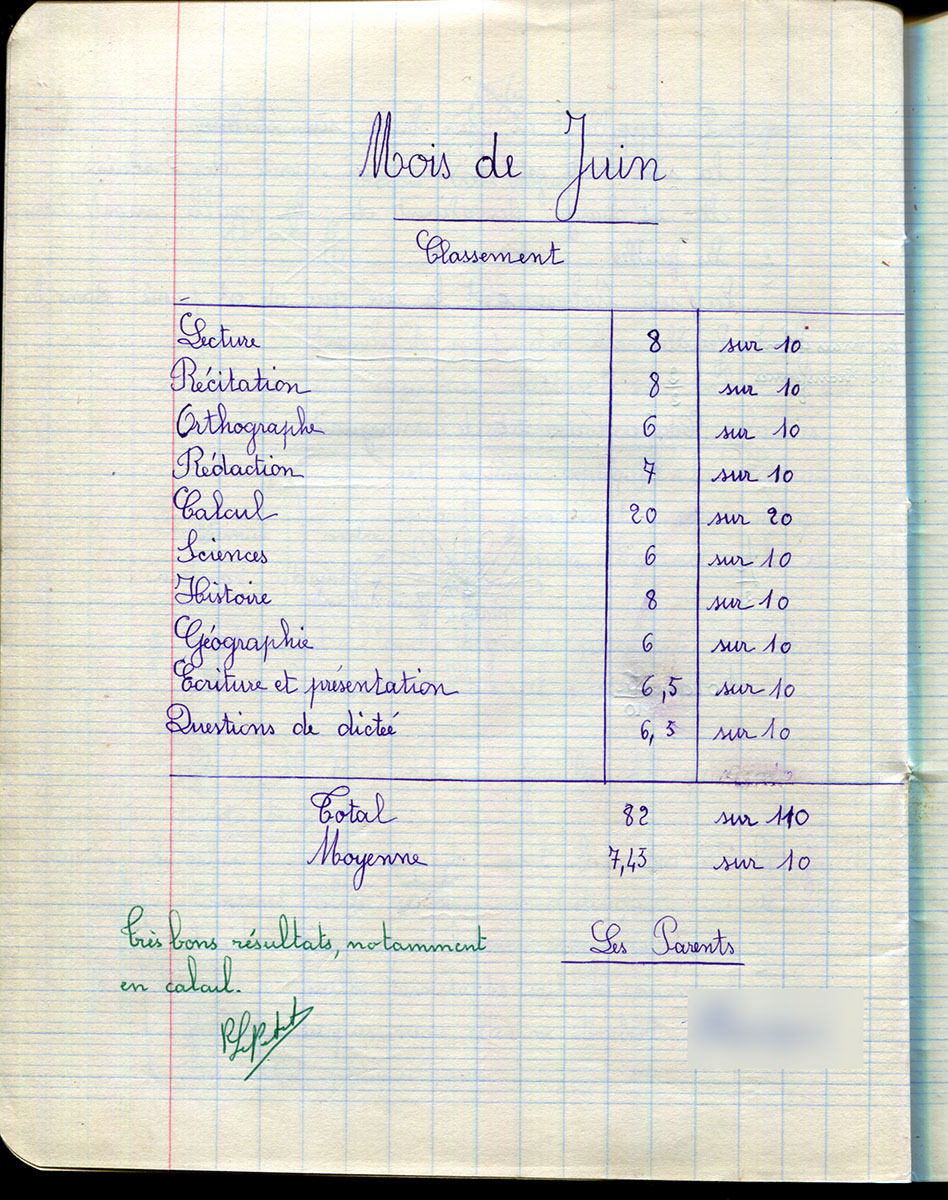 Mois de Juin
Classement
Lecture 8 sur 10
Récitation 8 sur 10
Orthographe 6 sur 10
Rédaction 7 sur 10
Calcul 20 sur 20
Sciences 6 sur 10
Histoire 8 sur 10
Géographie 6 sur 10
Ecriture et présentation 6,5 sur 10
Questions de dictée 6,5 sur 10
Total 82 sur 110
Moyenne 7,45 sur 10
Très bons résultats, notamment
en calcul.
Les Parents